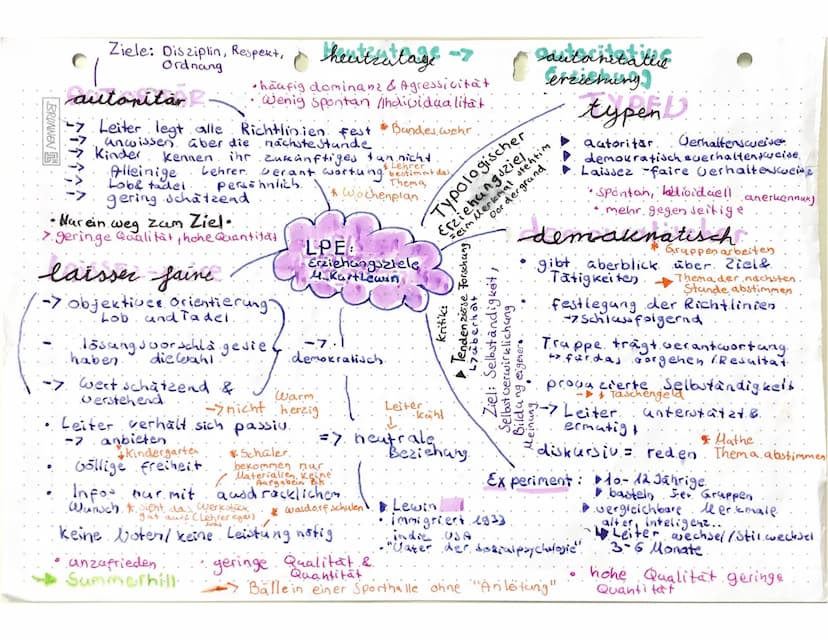 Ziele: Disziplin, Respekt,
Ordnung
autoritär
• häufig dominanz & Agressivität
• wenig spontan /Individualität
-> Leiter legt alle Richtlinien fest
* Bundeswehr
-> anwissen über die nächste Stunde
-> Kinder kennen ihr zukünftiges tun nicht
-> Alleinige Lehrer verantwortung
* Lehrer
bestimmt das
Thema
-> Lob & tadel persönlich
* Wochenplan
-> gering schätzend
• Nur ein weg zum Ziel •
> geringe Qualität, hohe Quantität
Heutzutage ->
heutzutage
autoritative
Erziehung
autoritative
erziehung
typen
▶ autoritär Verhaltensweise
▶ demokratisch verhaltensweise
▶ Laissez-faire Verhaltensweise
• spontan, Individuell anerkennung
• mehr gegenseitige
Typologischer
Erziehungsziel
sein Merkmal steht im
vordergrund
LPE:
Erziehungsziele
n. Kurt Lewin
laisser faire
-> objektiver Orientierung
Lob und Tadel
- lösungsvorschläge sie
haben die Wahl
-> Wertschätzend &
verstehend
-> demokratisch
Warm
-> nicht herzig
• Leiter verhält sich passiv
-> anbieten
Kindergarten
• völlige freiheit
* Schüler
bekommen nur
Materialien, keine
Aufgaben
• Infos nur mit ausdrücklichem
Wunsch
* waldorfschulen
keine Noten/ keine Leistung nötig
• anzufrieden
• geringe Qualität &
Quantität
-> Summerhill
-> Bälle in einer Sporthalle ohne "Anleitung"
Leiter
kühl
=> neutrale
Beziehung
Kritik:
▶ Tendenziöse Forschung
↳ überholt
Ziel: Selbständigkeit,
Selbstverwirklichung
Bildung eigener
Meinung
demokratisch
* Gruppenarbeiten
• gibt überblick über Ziel &
Tätigkeiten
-> Thema der nächsten
Stunde abstimmen
• festlegung der Richtlinien
-> schlussfolgernd
Truppe trägt verantwortung
↳ für das vorgehen /Resultat
provozierte Selbständigkeit
-> * Taschengeld
-> Leiter unterstützt &
ermutigt
• diskursiv = reden
* Mathe
Thema abstimmen
Experiment:
▶ 10-12 Jährige
▶ basteln 5er Gruppen
▶ vergleichbare Merkmale
alter, Inteligenz..
↳ Leiter wechsel/Stilwechsel
3-6 Monate
▶ Lewin
• immigriert 1933
in die USA
• "Vater der sozialpsychologie"
• hohe Qualität geringe
Quantität
BRUNNEN